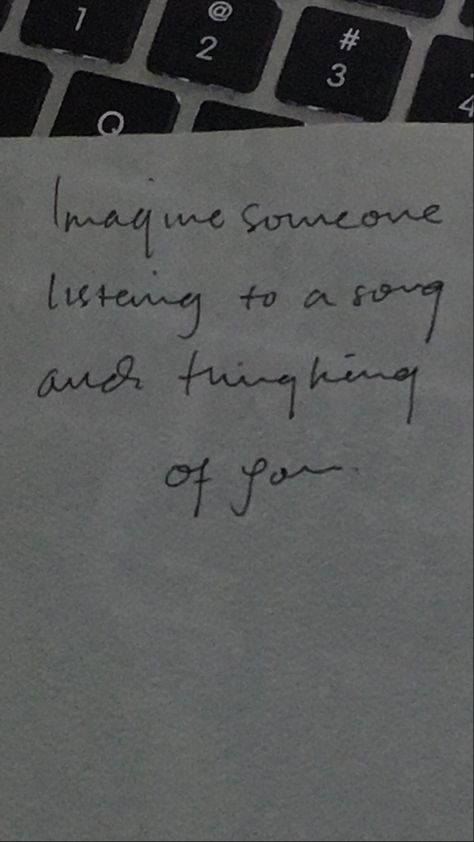 1 @ 2 # 3 4
Q
Imagine someone
listeing to a song
and thinghing
of you.